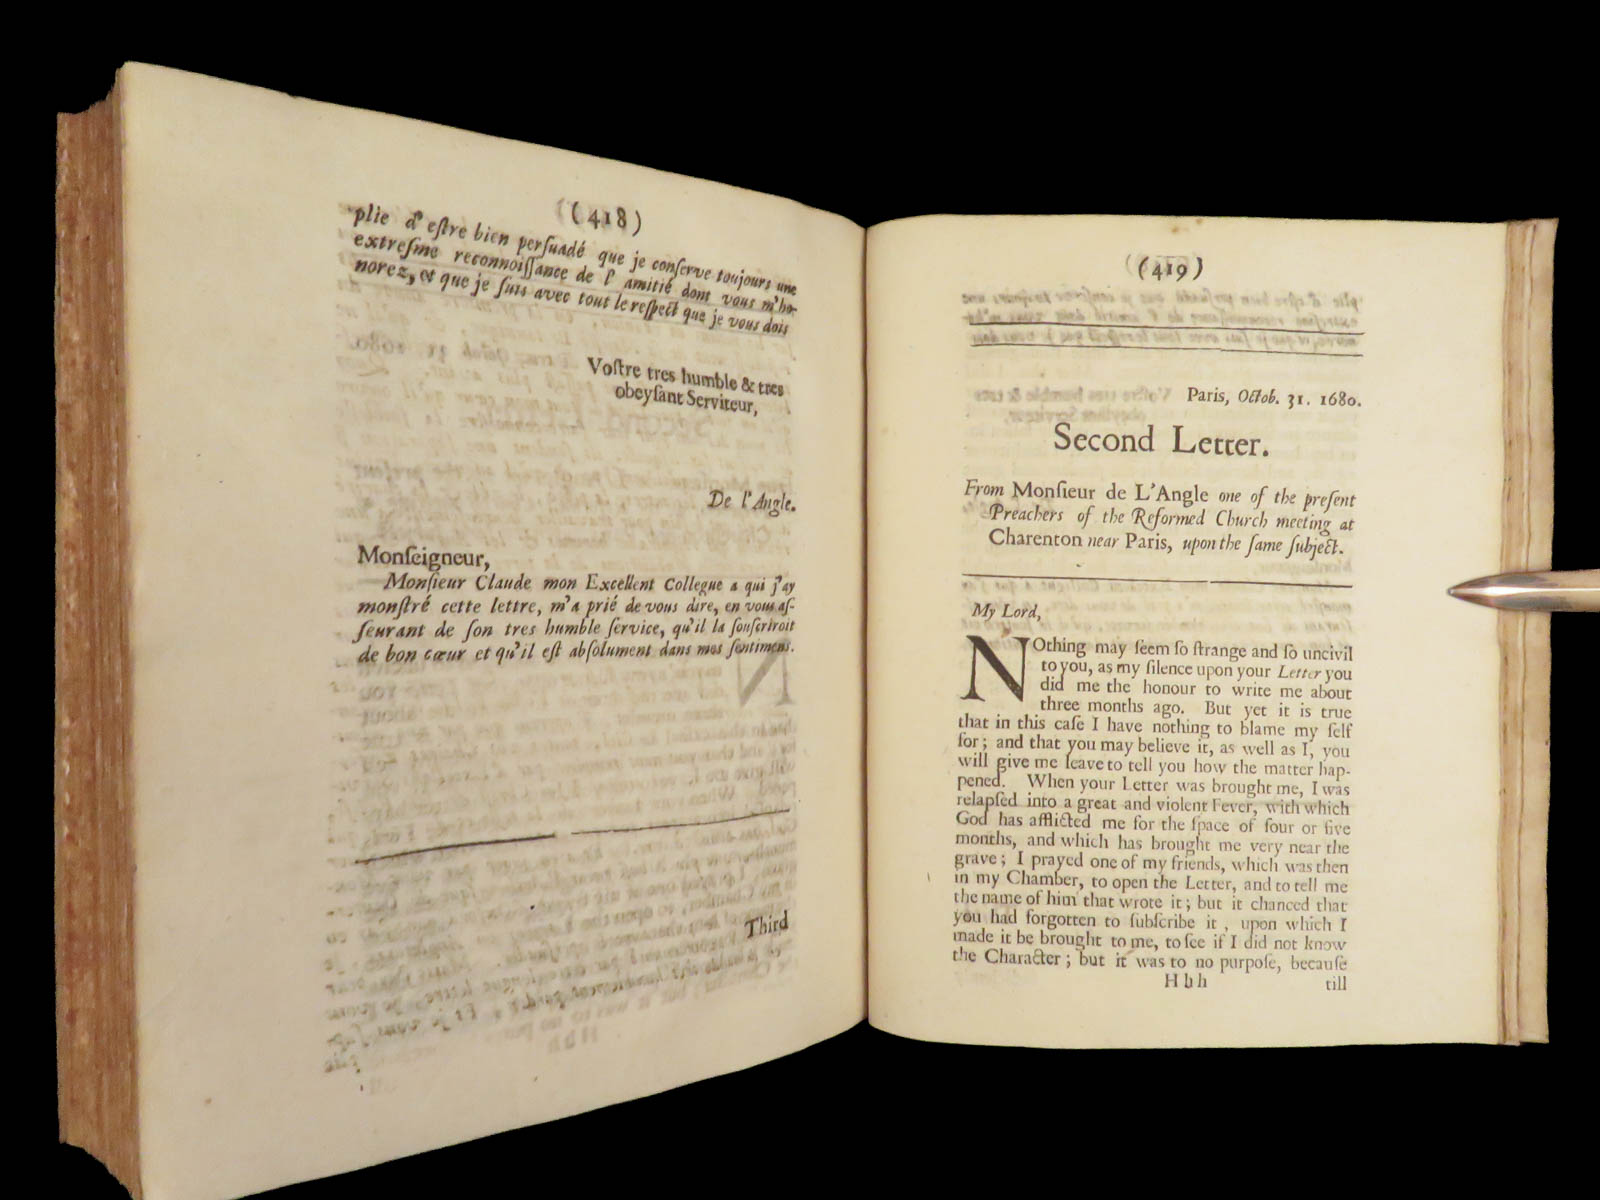 (418)
plie d'eſtre bien perſuadé que je conſerve toujours une
extreſme reconnoiſſance de l'amitié dont vous m'ho-
norez, et que je ſuis avec tout le reſpect que je vous dois
Voſtre tres humble & tres
obeyſant Serviteur,
De l'Angle.
Monſeigneur,
Monſieur Claude mon Excellent Collegue a qui j'ay
monſtré cette lettre, m'a prié de vous dire, en vous aſ-
ſeurant de ſon tres humble ſervice, qu'il la ſouſcriroit
de bon cœur et qu'il eſt abſolument dans mes ſentimens.
Third
(419)
Paris, Octob. 31. 1680.
Second Letter.
From Monſieur de L'Angle one of the preſent
Preachers of the Reformed Church meeting at
Charenton near Paris, upon the ſame ſubject.
My Lord,
NOthing may ſeem ſo ſtrange and ſo uncivil
to you, as my ſilence upon your Letter you
did me the honour to write me about
three months ago. But yet it is true
that in this caſe I have nothing to blame my ſelf
for; and that you may believe it, as well as I, you
will give me leave to tell you how the matter hap-
pened. When your Letter was brought me, I was
relapſed into a great and violent Fever, with which
God has afflicted me for the ſpace of four or five
months, and which has brought me very near the
grave; I prayed one of my friends, which was then
in my Chamber, to open the Letter, and to tell me
the name of him that wrote it; but it chanced that
you had forgotten to ſubſcribe it, upon which I
made it be brought to me, to ſee if I did not know
the Character; but it was to no purpoſe, becauſe
Hhh
till